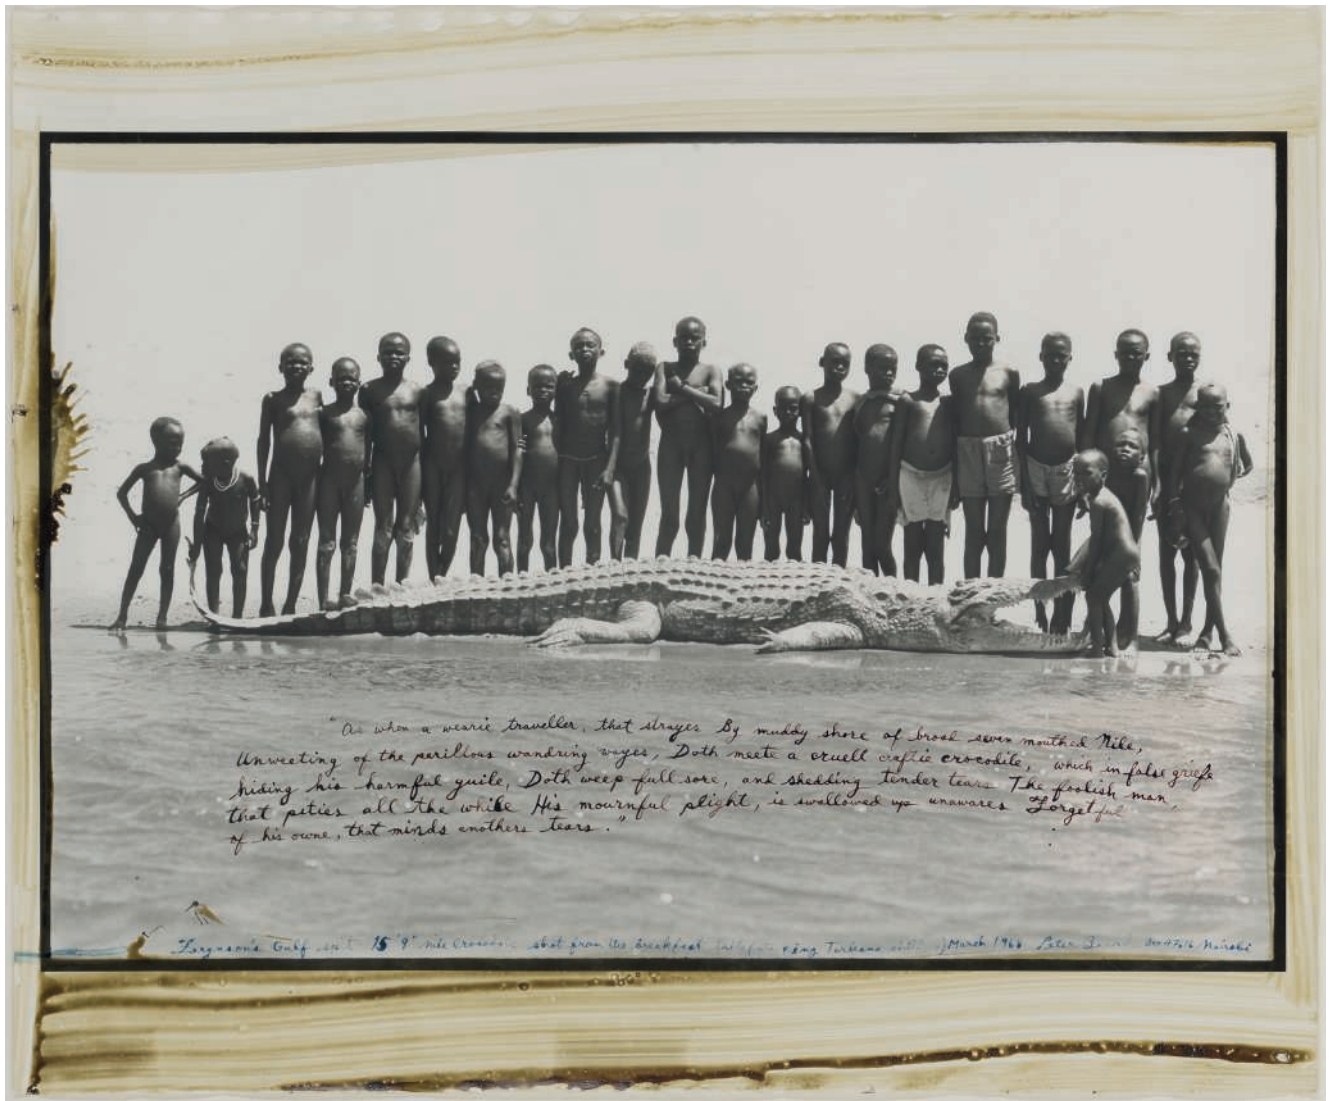 "As when a wearie traveller, that strayes By muddy shore of broad seven mouthed Nile,
Unweeting of the perillous wandring wayes, Doth meete a cruell craftie crocodile, which in false griefe
hiding his harmful guile, Doth weep full sore, and shedding tender tears The foolish man,
that pities all the while His mournful plight, is swallowed up unawares Forgetful
of his owne, that minds anothers tears."
Ferguson's Gulf spit 15' 9" Nile Crocodile shot from its breakfast Turkana March 1966 Peter Beard Box 47616 Nairobi